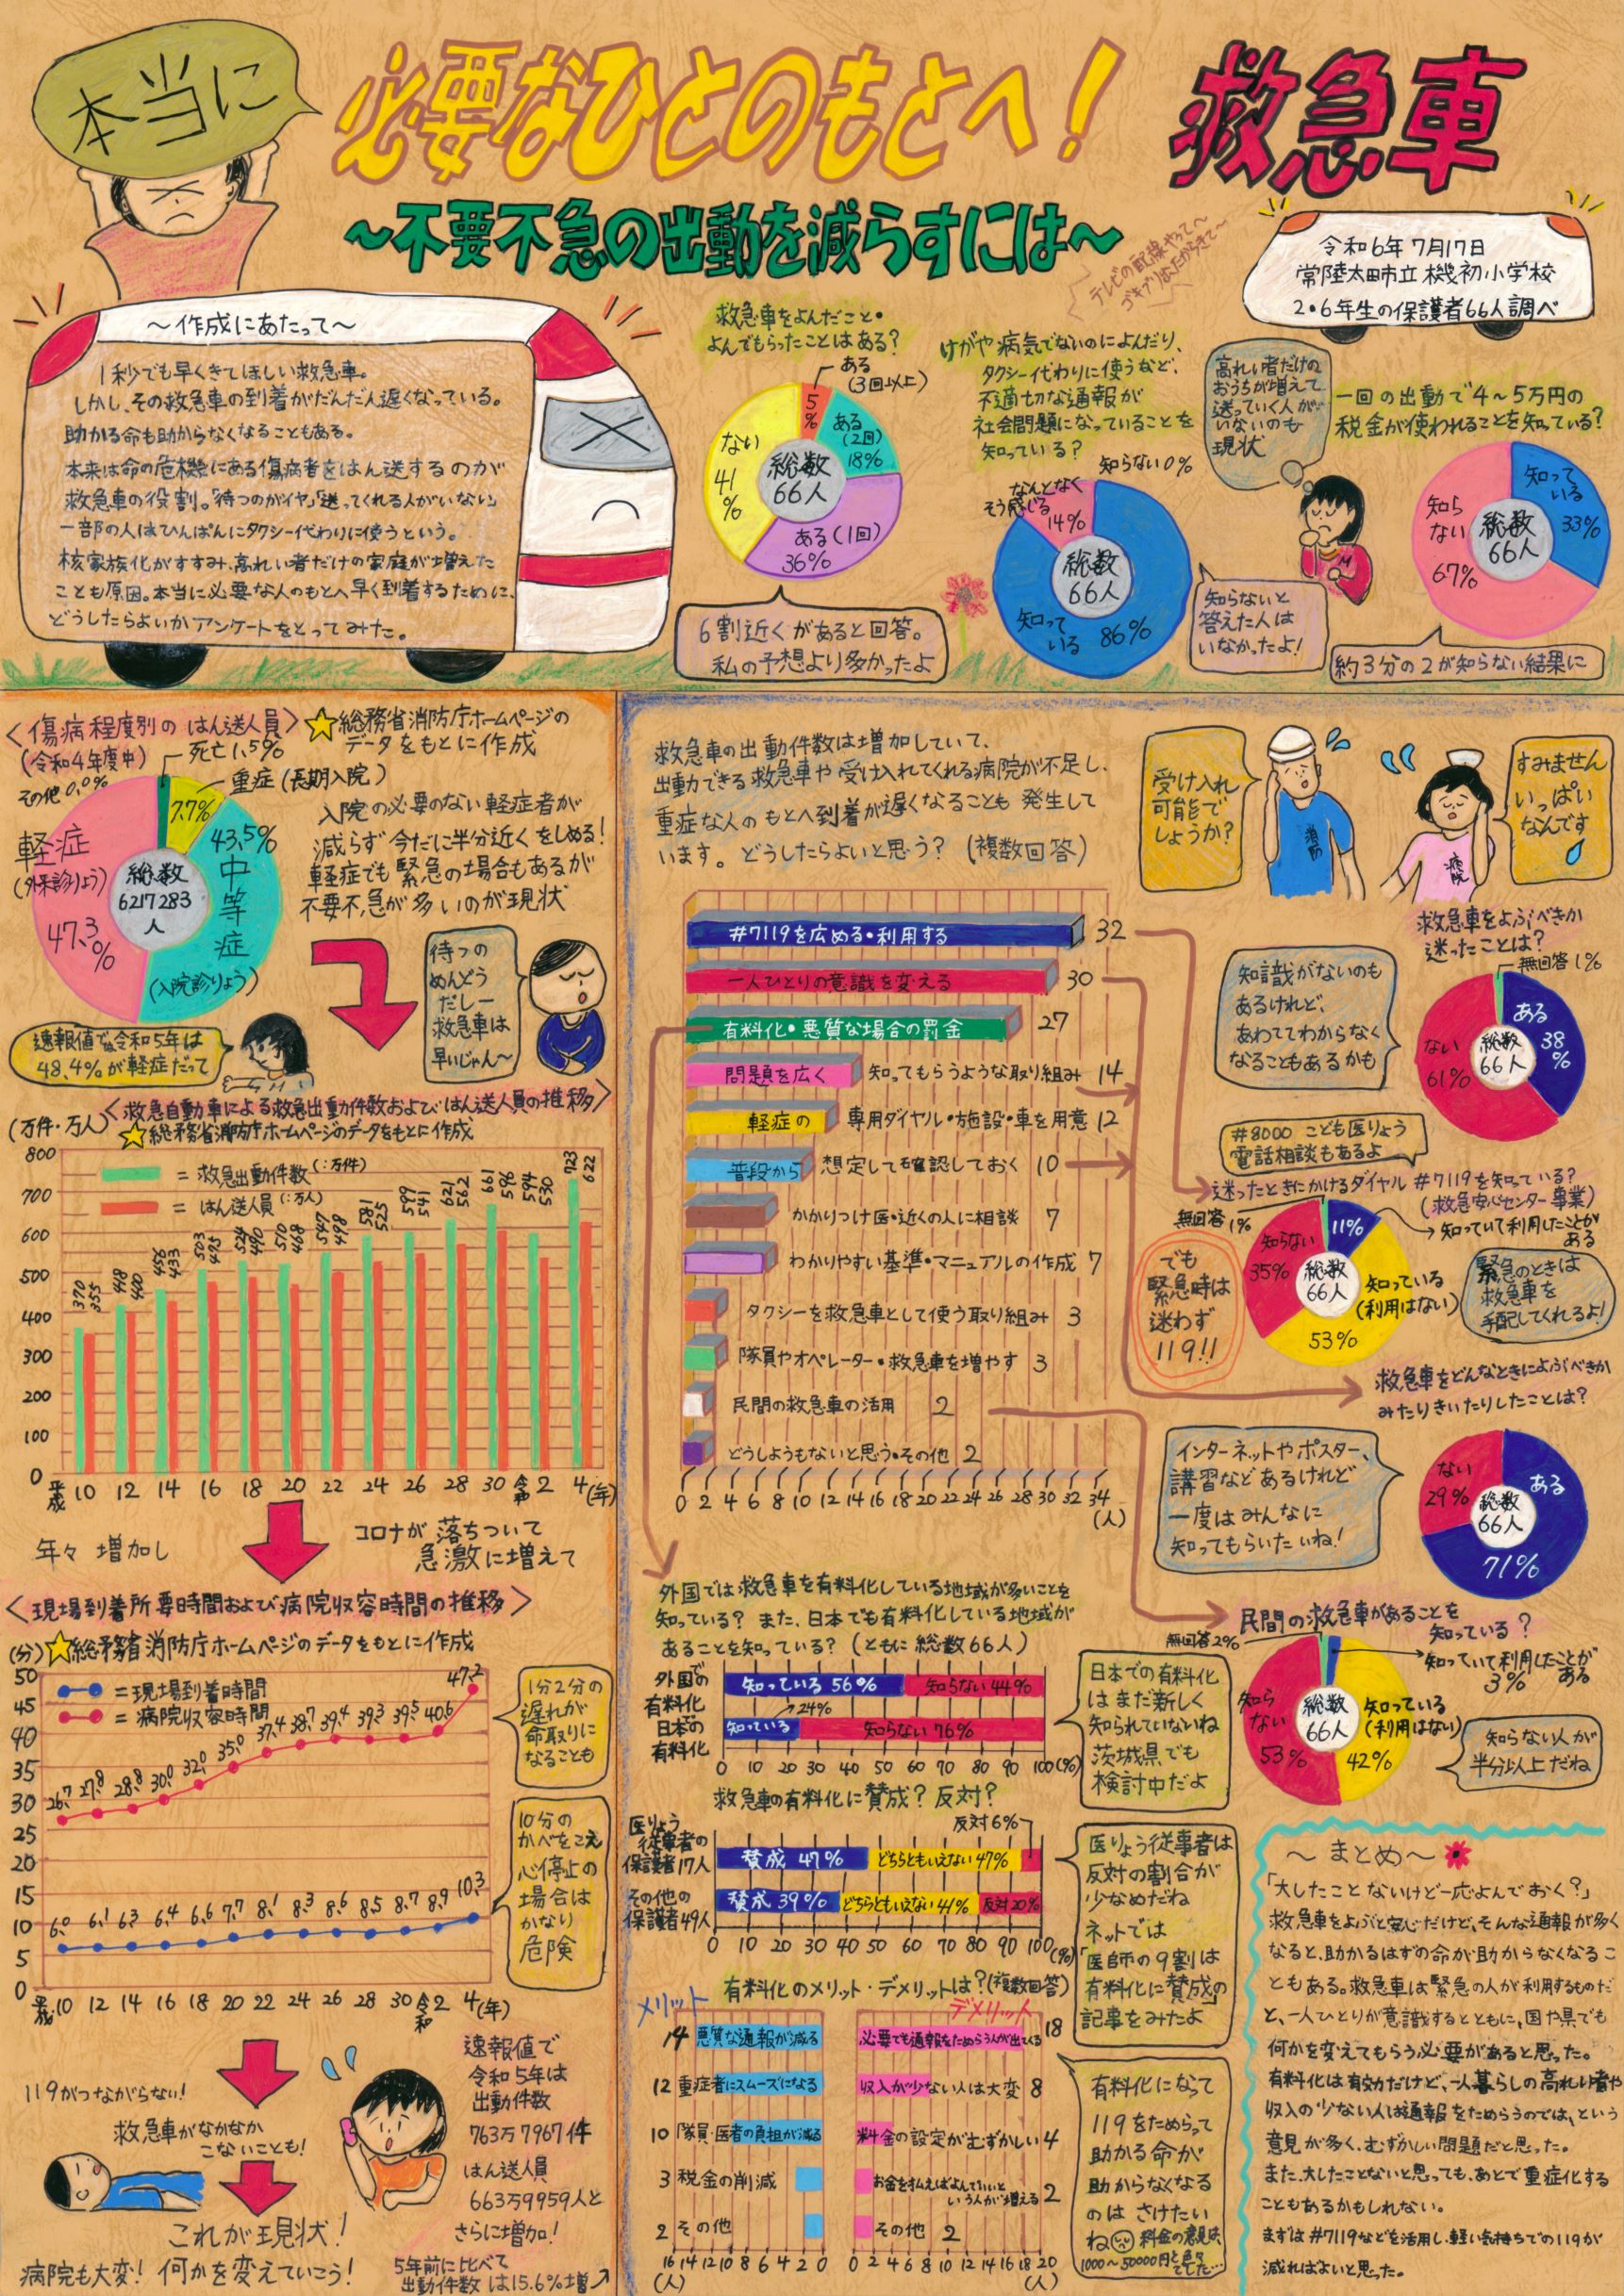 本当に
必要なひとのもとへ! 救急車
～不要不急の出動を減らすには～
テレビの配線やって～
令和6年7月17日
常陸太田市立機初小学校
2・6年生の保護者66人調べ
～作成にあたって～
1秒でも早くきてほしい救急車。
しかし、その救急車の到着がだんだん遅くなっている。
助かる命も助からなくなることもある。
本来は命の危機にある傷病者をはん送するのが
救急車の役割。「待つのがイヤ」「送ってくれる人がいない」
一部の人はひんぱんにタクシー代わりに使うという。
核家族化がすすみ、高れい者だけの家庭が増えた
ことも原因。本当に必要な人のもとへ早く到着するために、
どうしたらよいかアンケートをとってみた。
救急車をよんだこと・
よんでもらったことはある?
ある
(3回以上)
5%
ある
(2回)
18%
ある(1回)
36%
ない
41%
総数
66人
6割近くがあると回答。
私の予想より多かったよ
けがや病気でないのによんだり、
タクシー代わりに使うなど、
不適切な通報が
社会問題になっていることを
知っている?
知らない0%
なんとなく
そう感じる
14%
総数
66人
知って
いる 86%
知らないと
答えた人は
いなかったよ!
高れい者だけの
おうちが増えて
送っていく人が
いないのも
現状
一回の出動で4～5万円の
税金が使われることを知っている?
知って
いる
33%
知ら
ない
67%
総数
66人
約3分の2が知らない結果に
<傷病程度別のはん送人員>
(令和4年度中)
☆総務省消防庁ホームページの
データをもとに作成
死亡1.5%
その他0.0%
重症(長期入院)
7.7%
43.5%
中等症
(入院診りょう)
軽症
(外来診りょう)
47.3%
総数
6217283
人
入院の必要のない軽症者が
減らず今だに半分近くをしめる!
軽症でも緊急の場合もあるが
不要不急が多いのが現状
待つの
めんどう
だしー
救急車は
早いじゃん～
速報値で令和5年は
48.4%が軽症だって
<救急自動車による救急出動件数およびはん送人員の推移>
(万件・万人)
☆総務省消防庁ホームページのデータをもとに作成
=救急出動件数(:万件)
=はん送人員(:万人)
800
700
600
500
400
300
200
100
0
370 355
448 400
456 433
503 475
524 490
510 468
547 498
581 525
599 541
621 562
661 596
594 530
723 622
平成10 12 14 16 18 20 22 24 26 28 30 令和2 4(年)
年々増加し
コロナが落ちついて
急激に増えて
<現場到着所要時間および病院収容時間の推移>
(分)
☆総務省消防庁ホームページのデータをもとに作成
=現場到着時間
=病院収容時間
50
45
40
35
30
25
20
15
10
5
0
26.7 27.8 28.8 30.0 32.0 35.0 37.4 38.7 39.4 39.3 39.5 40.6 47.2
6.0 6.1 6.3 6.4 6.6 7.7 8.1 8.3 8.6 8.5 8.7 8.9 10.3
平成10 12 14 16 18 20 22 24 26 28 30 令和2 4(年)
1分2分の
遅れが
命取りに
なることも
10分の
かべをこえ
心停止の
場合は
かなり
危険
119がつながらない!
救急車がなかなか
こないことも!
これが現状!
病院も大変! 何かを変えていこう!
速報値で
令和5年は
出動件数
763万7967件
はん送人員
663万9959人と
さらに増加!
5年前に比べて
出動件数は15.6%増↗
救急車の出動件数は増加していて、
出動できる救急車や受け入れてくれる病院が不足し、
重症な人のもとへ到着が遅くなることも発生して
います。どうしたらよいと思う? (複数回答)
#7119を広める・利用する 32
一人ひとりの意識を変える 30
有料化・悪質な場合の罰金 27
問題を広く知ってもらうような取り組み 14
軽症の専用ダイヤル・施設・車を用意 12
普段から想定して確認しておく 10
かかりつけ医・近くの人に相談 7
わかりやすい基準・マニュアルの作成 7
タクシーを救急車として使う取り組み 3
隊員やオペレーター・救急車を増やす 3
民間の救急車の活用 2
どうしようもないと思う・その他 2
0 2 4 6 8 10 12 14 16 18 20 22 24 26 28 30 32 34
(人)
受け入れ
可能で
しょうか?
消防
病院
すみません
いっぱい
なんです
救急車をよぶべきか
迷ったことは?
無回答1%
ある
38%
ない
61%
総数
66人
知識がないのも
あるけれど、
あわててわからなく
なることもあるかも
#8000こども医りょう
電話相談もあるよ
迷ったときにかけるダイヤル#7119を知っている?
(救急安心センター事業)
無回答1%
11%
知っていて利用したことが
ある
知らない
35%
知っている
(利用はない)
53%
総数
66人
でも
緊急時は
迷わず
119!!
緊急のときは
救急車を
手配してくれるよ!
救急車をどんなときによぶべきか
みたりきいたりしたことは?
ない
29%
ある
71%
総数
66人
インターネットやポスター、
講習などあるけれど
一度はみんなに
知ってもらいたいね!
民間の救急車があることを
知っている?
無回答2%
知っていて利用したことが
ある
3%
知ら
ない
53%
知っている
(利用はない)
42%
総数
66人
知らない人が
半分以上だね
外国では救急車を有料化している地域が多いことを
知っている? また、日本でも有料化している地域が
あることを知っている? (ともに総数66人)
外国での
有料化
知っている56% 知らない44%
日本での
有料化
知っている 24% 知らない76%
0 10 20 30 40 50 60 70 80 90 100(%)
日本での有料化
はまだ新しく
知られていないね
茨城県でも
検討中だよ
救急車の有料化に賛成? 反対?
医りょう
従事者の
保護者17人
賛成47% どちらともいえない47% 反対6%
その他の
保護者49人
賛成39% どちらともいえない41% 反対20%
0 10 20 30 40 50 60 70 80 90 100(%)
医りょう従事者は
反対の割合が
少なめだね
ネットでは
「医師の9割は
有料化に賛成」の
記事をみたよ
有料化のメリット・デメリットは?(複数回答)
メリット
14 悪質な通報が減る
12 重症者にスムーズになる
10 隊員・医者の負担が減る
3 税金の削減
2 その他
16 14 12 10 8 6 4 2 0
(人)
デメリット
必要でも通報をためらう人が出てくる 18
収入が少ない人は大変 8
料金の設定がむずかしい 4
お金を払えばよんでいいと
いう人が増える 2
その他 2
0 2 4 6 8 10 12 14 16 18 20
(人)
有料化になって
119をためらって
助かる命が
助からなくなる
のはさけたい
ね
料金の意見は、
1000～50000円と色々
でした…
～まとめ～
「大したことないけど一応よんでおく?」
救急車をよぶと安心だけど、そんな通報が多く
なると、助かるはずの命が助からなくなるこ
ともある。救急車は緊急の人が利用するものだ
と、一人ひとりが意識するとともに、国や県でも
何かを変えてもらう必要があると思った。
有料化は有効だけど、一人暮らしの高れい者や
収入の少ない人は通報をためらうのでは、という
意見が多く、むずかしい問題だと思った。
また、大したことないと思っても、あとで重症化する
こともあるかもしれない。
まずは#7119などを活用し、軽い気持ちでの119が
減ればよいと思った。